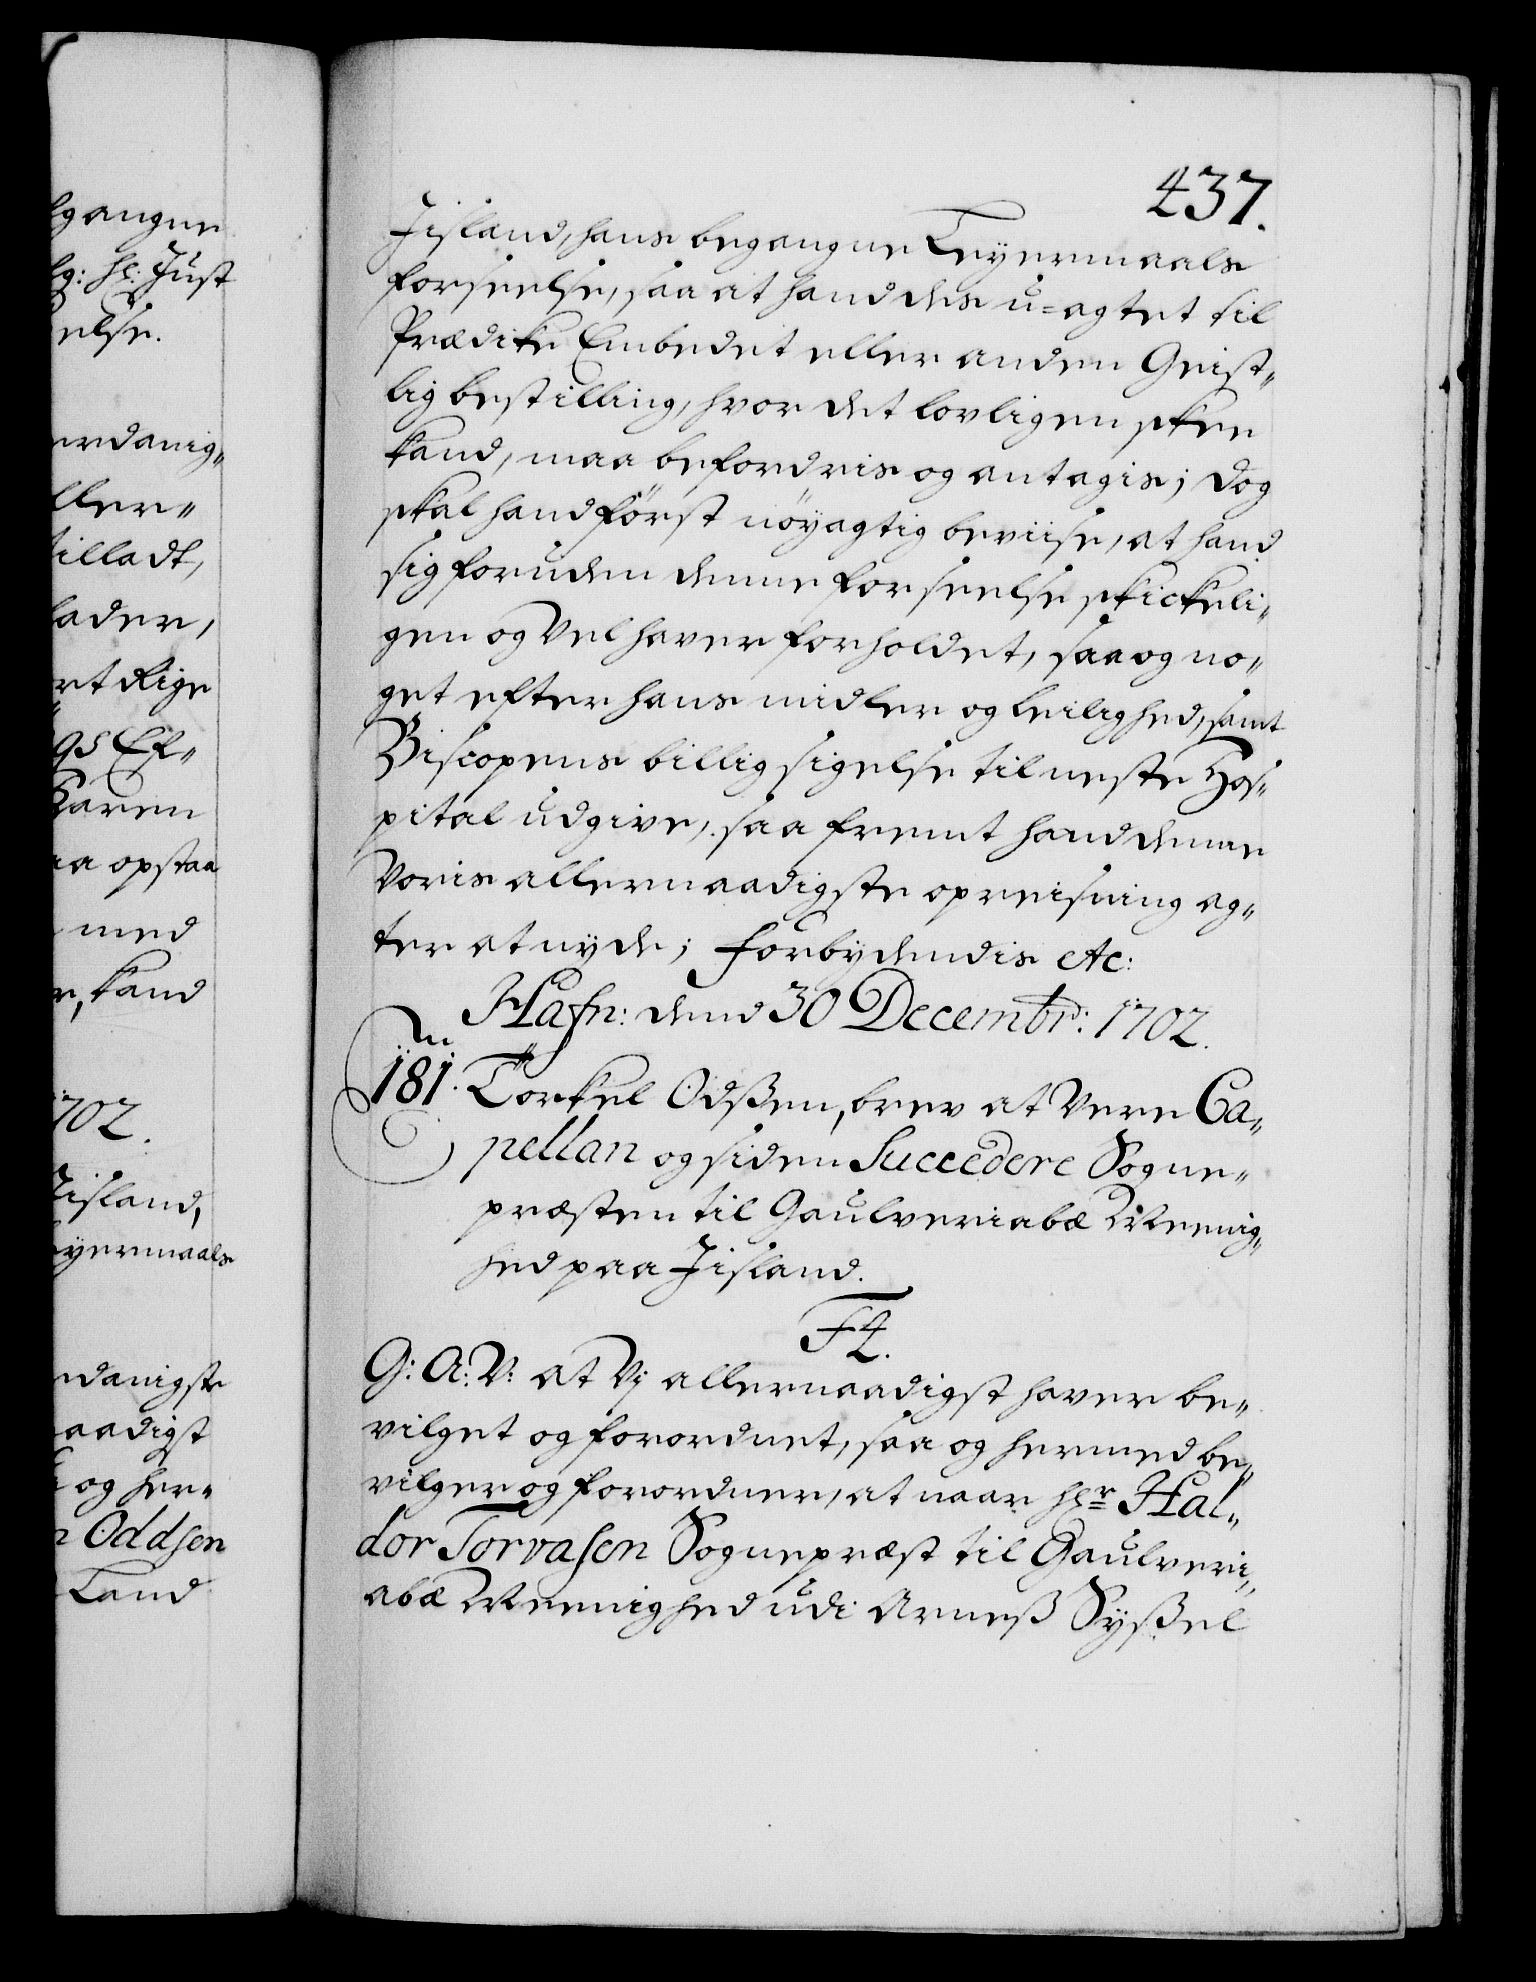 gangne
g: H: Just
else.
erdanig„
ller„
tilladt,
lader,
rt Rige
gs Ef„
Karen
aa opstaa
med
r, kand
1702.
Jisland,
eyermaals
ndanigste
aadigst
og her„
Oddsen
Land
437.
Jisland, hans begangne Leyermaals
forseelse, saa at hand des u=agtet til
Prædike Embedet eller anden Geist„
lig bestilling, hvor det lovligen skee
kand, maa befordris og antagis; dog
skal hand först nöyagtig beviise, at hand
sig foruden denne forseelse skickeli„
gen og vel haver forholdet, saa og no„
get efter hans midler og leilighed, samt
Biscopens billig sigelse til neste Hos„
pital udgive, saa fremt hand denne
Voris allernaadigste opreisning ag„
ter at nyde; Forbydendis etc:
Hafn: dend 30 Decembr: 1702.
181. Torkel Odßen, brev at være Ca„
pellan og siden Succedere Sogne„
præsten til Gaulveriabæ Meenig„
hed paa Jisland.
F4.
G: A: V: at Vj allernaadigst haver be„
vilget og forordnet, saa og hermed be„
vilger og forordner, at naar Hr Hal„
dor Torvasen Sognepræst til Gaulveri„
abæ Meenighed udi Arneß Syßel